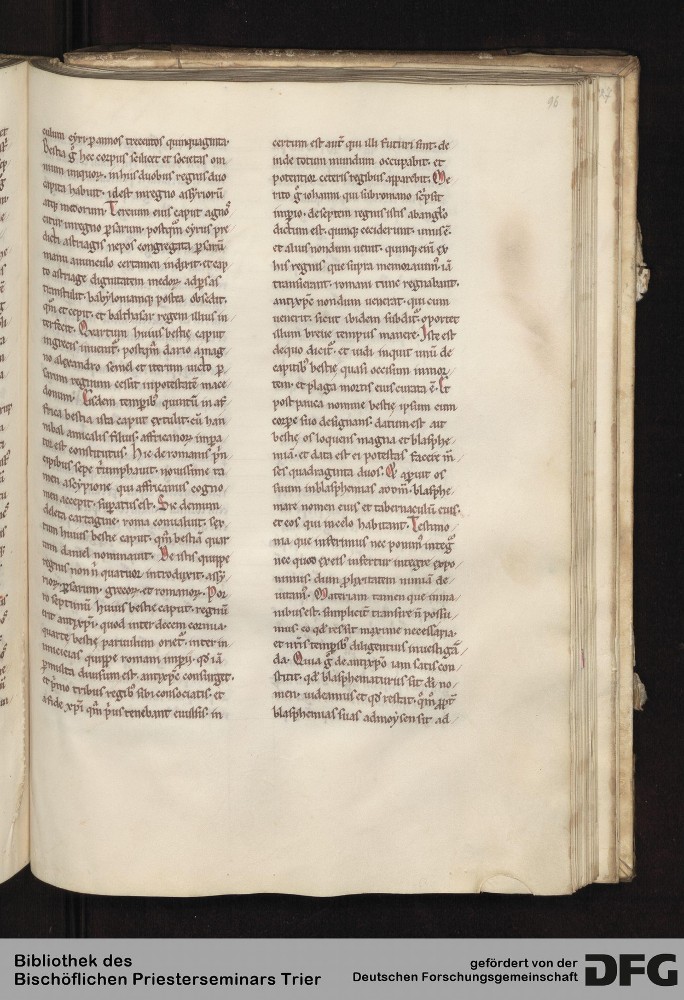 96
97
culum cyri p annos trecentos quinquaginta.
Bestia g̊ hec corpus scilicet et societas om
nium iniquoꝝ. in his duobus regnis duo
capita habuit. idest in regno assyrioꝝ
atq; medorum. Tercium eius caput agnos
citur in regno ꝑsarum. postqm̄ cyrus pre
dicti astriagis nepos congregata ꝑsarū
manu auunculo certamen indixit. et cap
to astriage dignitatem medoꝝ. ad ꝑsas
transtulit. babyloniamq; postea obsedit.
qm̄ et cepit. et balthasar regem illius in
terfecit. Quartum huius bestie caput
ingrecis inuenit̉. postqm̄ dario a mag
no alexandro semel et iterum uicto ꝑ
sarum regnum cessit in potestatē mace
donum. Eisdem temꝑib; quintū in af
frica bestia ista caput extulit. cū han
nibal amicalis filius. affricanoꝝ impa
tor est constitutus. Hic de romanis pn̄
cipibus sepe triumphauit. nouissime ta
men a scypione qui affricanus cogno
men accepit. suꝑatus est. Sic demum
deleta cartagine. roma conualuit. sex
tum huius bestie caput. qm̄ bestiā quar
tam daniel nominauit. De istis quippe
regnis non n̄ quatuor introduxit. assy
rioꝝ. ꝑsarum. grecoꝝ. et romanoꝝ. Por
ro septimū huius bestie caput. regnū
erit antixp̄i. quod inter decem cornua.
quarte bestie paruulum oriet̉. inter in
imicicias quippe romani impij. qd iā
ꝑmulta diuisum est. antixpc̄ consurget.
et p̄mo tribus regib; sibi consociatis. et
a fide xp̄i qm̄ p̄us tenebant euulsis. in
certum est aut̄ qui illi futuri sint. de
inde totum mundum occupabit. et
potentior ceteris regibus apparebit. Me
rito g̊ iohanni qui sub romano sc̄psit
imꝑio. de septem regnis istis ab anglo
dictum est. quinq; ceciderunt. unus ē.
et alius nondum uenit. quinq; enī ex
his regnis que supra memorauim̉. iā
transierant. romani tunc regnabant.
antixpc̄ nondum uenerat. qui cum
uenerit. sicut ibidem subdit̉. oportet
illum breue tempus manere. Iste est
de quo dicit̉. et uidi inquit unū de
capitib; bestie quasi occisum in mor
tem. et plaga mortis eius curata ē. Et
post pauca nomine bestie ipsum cum
corpore suo designans. datum est aut̄
bestie os loquens magna et blasphe
miā. et data est ei potestas facere m̄
ses quadraginta duos. Et aperuit os
suum in blasphemias ad dm̄. blasphe
mare nomen eius et tabernaculū eius.
et eos qui in celo habitant. Testimo
nia que inferimus nec possum̉ integ̊
nec quod ex eis infertur integre expo
nimus. dum ꝓlixitatem nimiā de
uitam̉. Materiam tamen que inma
nibus est. simplicit̉ transire n̄ possu
mus. eo qd̄ res sit maxime necessaria.
et nr̄is temꝑib; diligentius inuestigā
da. Quia g̊ de antixp̄o iam satis con
stitit. qd̄ blasphematurus sit di no
men. uideamus et qd̄ restat. qm̄ ꝓpt̉
blasphemias suas ad moysen sit ad
Bibliothek des
Bischöflichen Priesterseminars Trier
gefördert von der
Deutschen Forschungsgemeinschaft
DFG